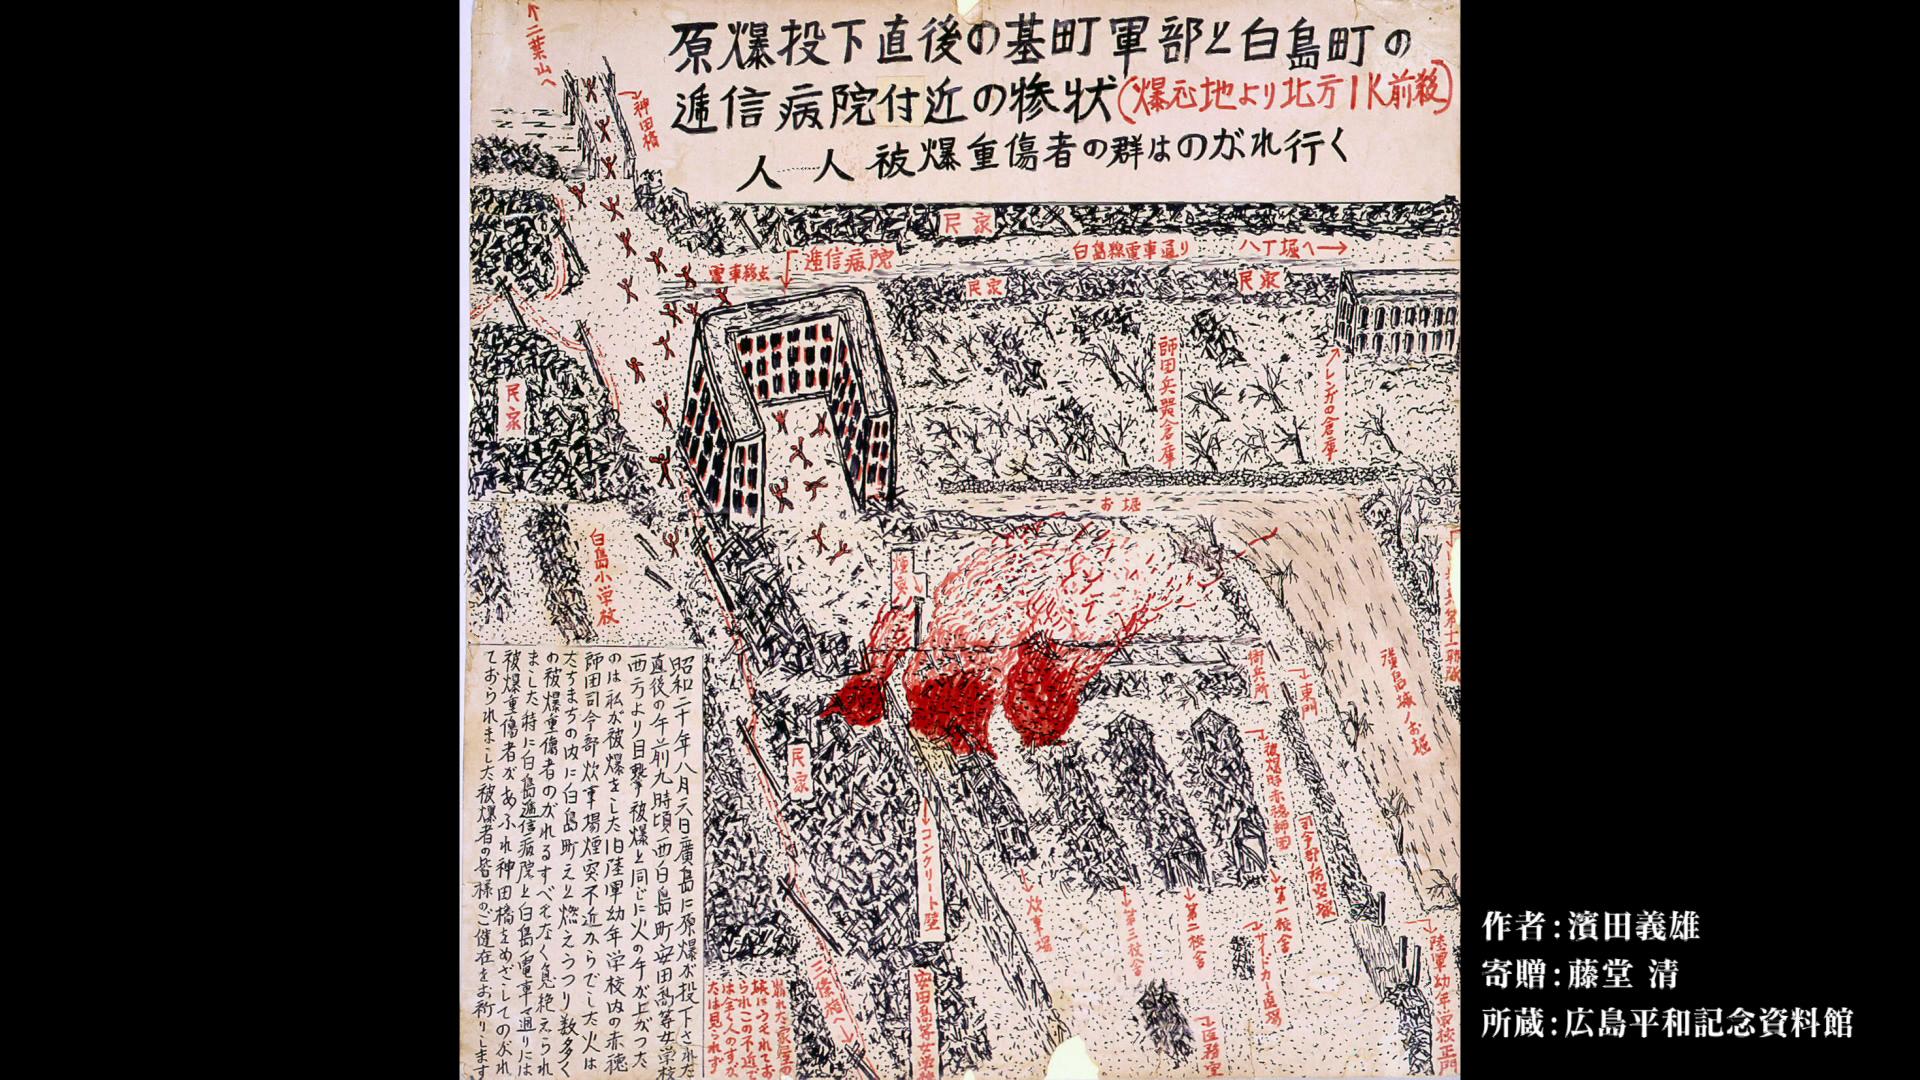 原爆投下直後の基町軍部と白島町の
逓信病院付近の惨状(爆心地より北方1K前後)
人……人 被爆重傷者の群はのがれ行く
↑二葉山へ
神田橋
民家
白島線電車通り
八丁堀へ→
電車終点
逓信病院
民家
民家
民家
師団兵器倉庫
レンガの倉庫
お堀
白島小学校
煙突
衛兵所
東門
廣島城ノお堀
民家
被爆時赤穂師団
司令部防空壕
コンクリート壁
炊事場
第三校舎
第二校舎
第一校舎
サイドカー置場
陸軍幼年学校正門
医務室
三篠橋へ
安田高等女学校
昭和二十年八月六日廣島に原爆が投下された
直後の午前九時頃西白島町安田高等女学校
西方より目撃被爆と同じに火の手が上がった
のは私が被爆をした旧陸軍幼年学校内の赤穂
師団司令部炊事場煙突不近からでした火は
たちまちの内に白島町えと燃えうつり数多く
の被爆重傷者のがれるすべもなく息絶えられ
ました特に白島逓信病院と白島電車通りには
被爆重傷者があふれ神田橋をめざしてのがれ
ておられました被爆者の皆様のご健在をお祈りします
崩れた家屋の
作者:濱田義雄
寄贈:藤堂 清
所蔵:広島平和記念資料館